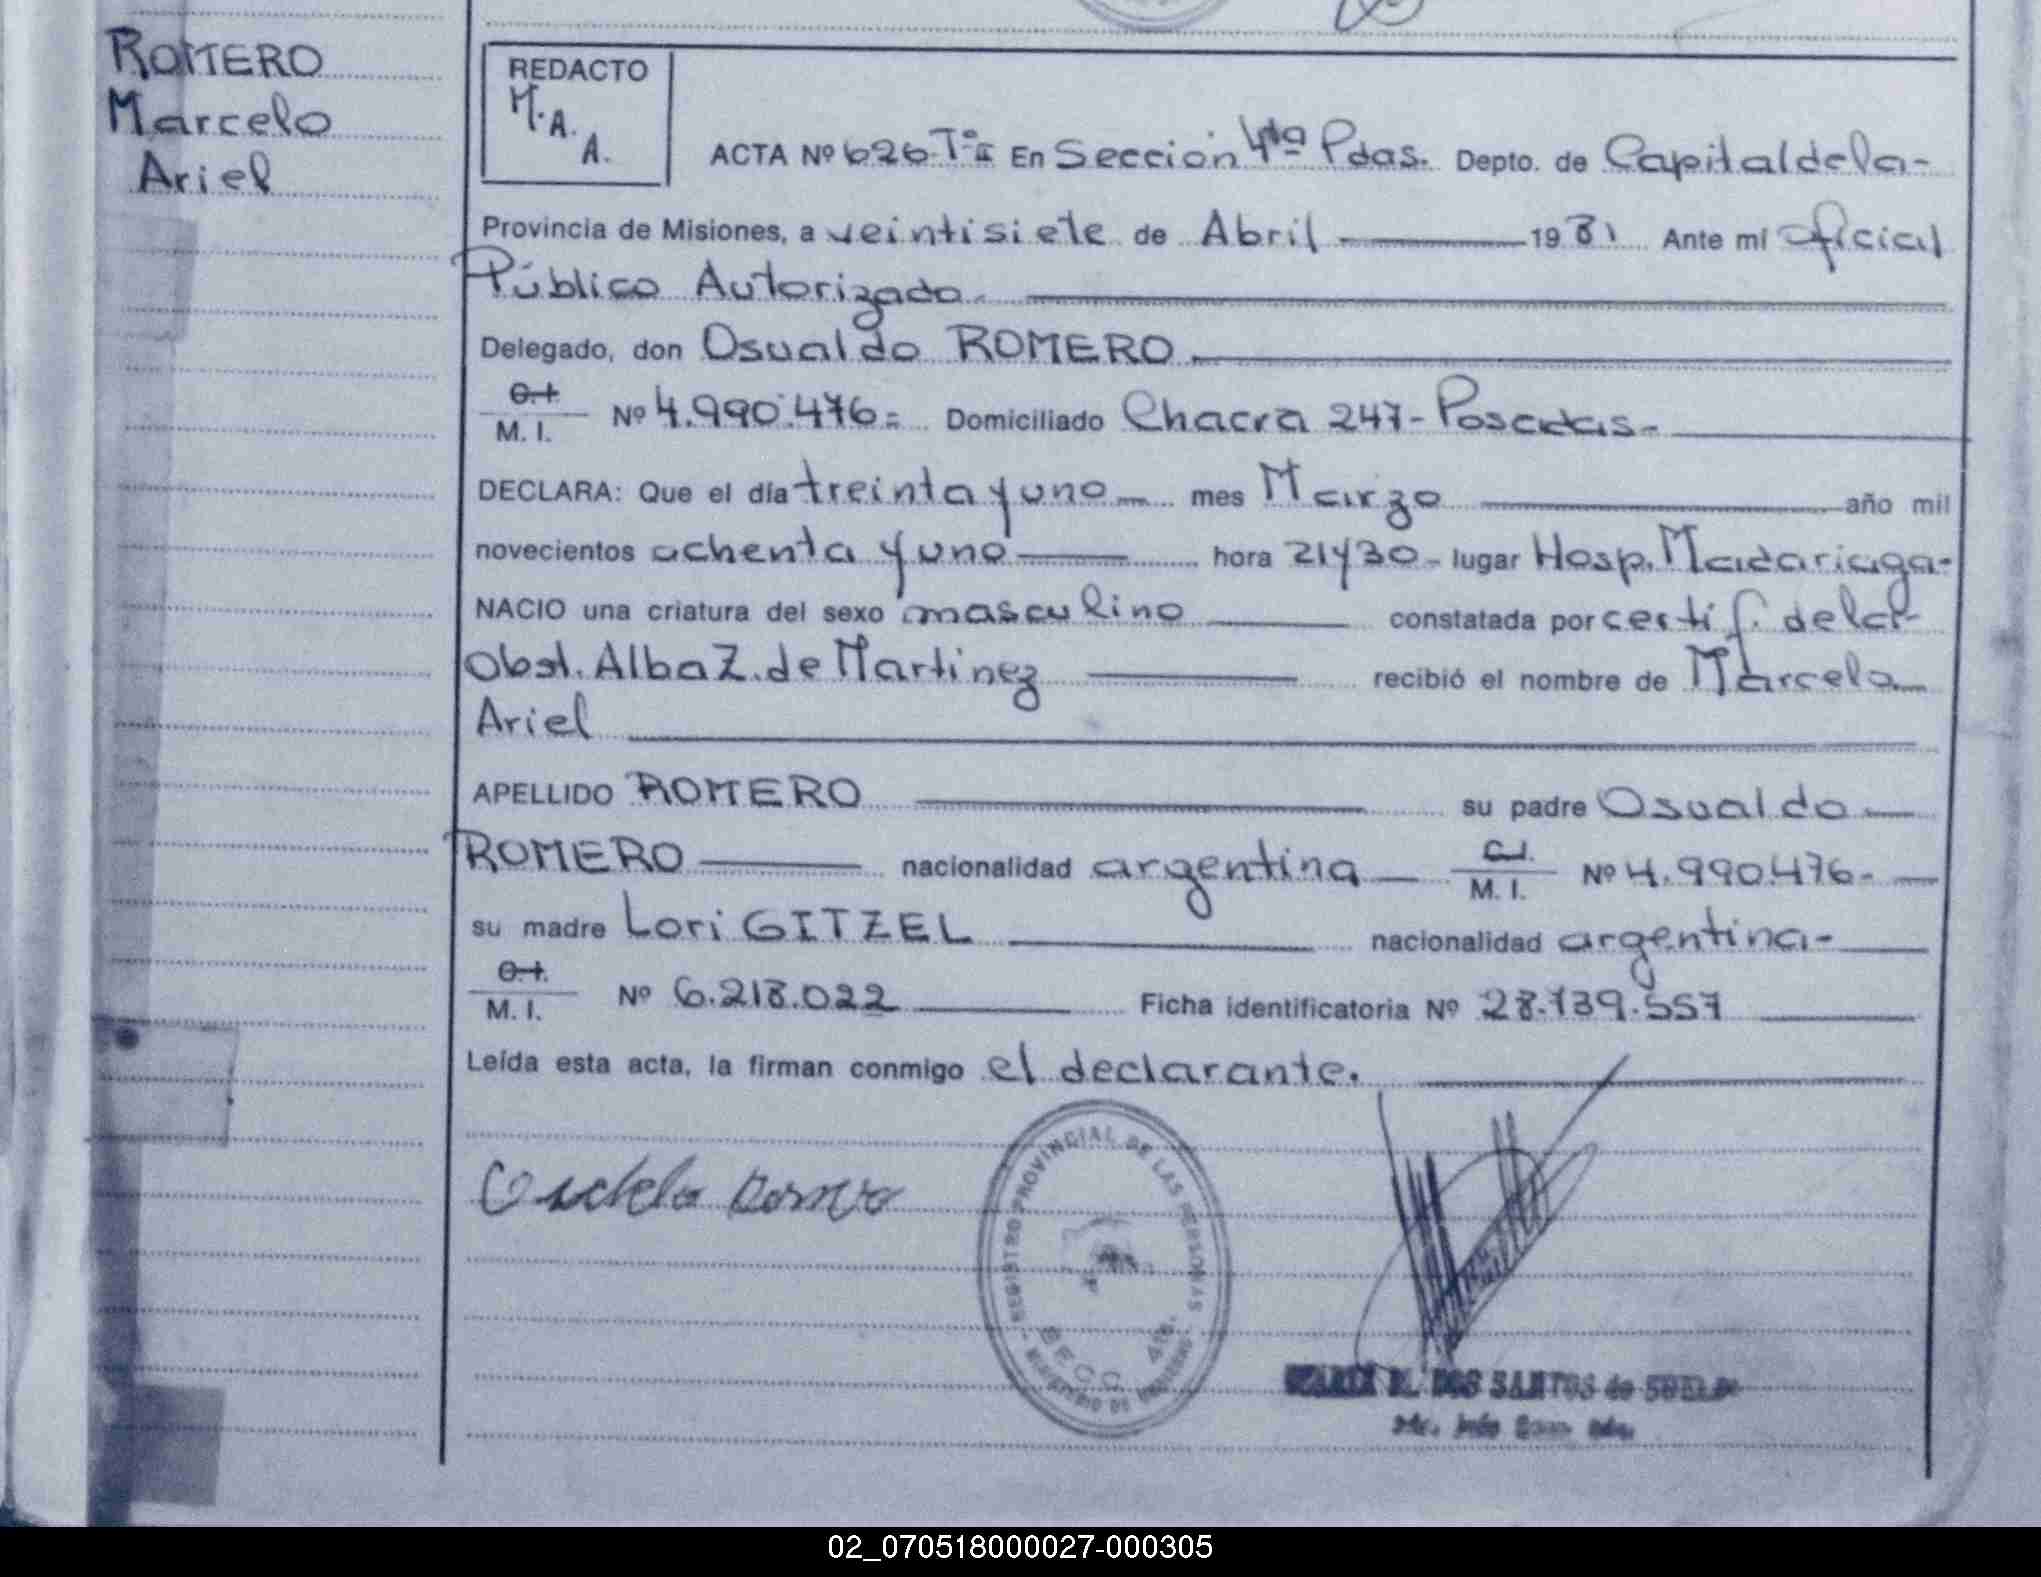 ROMERO
Marcelo
Ariel
REDACTO
M.A.
A.
ACTA Nº 626-Tº II En Sección 4ta Pdas. Depto. de Capital de la-
Provincia de Misiones, a veintisiete de Abril 1981 Ante mí Oficial
Público Autorizado.
Delegado, don Osvaldo ROMERO
C.I.
M. I. Nº 4.990.476= Domiciliado Chacra 247-Posadas-
DECLARA: Que el día treinta y uno mes Marzo año mil
novecientos ochenta y uno hora 21y30- lugar Hosp. Madariaga-
NACIO una criatura del sexo masculino constatada por certif. de la-
Obst. Alba Z. de Martinez recibió el nombre de Marcelo
Ariel
APELLIDO ROMERO su padre Osvaldo
ROMERO nacionalidad argentina C.I. M. I. Nº 4.990.476-
su madre Lori GITZEL nacionalidad argentina-
C.I.
M. I. Nº 6.218.022 Ficha identificatoria Nº 28.739.557
Leída esta acta, la firman conmigo el declarante.
REGISTRO PROVINCIAL DE LAS PERSONAS
SECC. 4ta.
MINISTERIO DE GOBIERNO
DOS SANTOS de
02_070518000027-000305